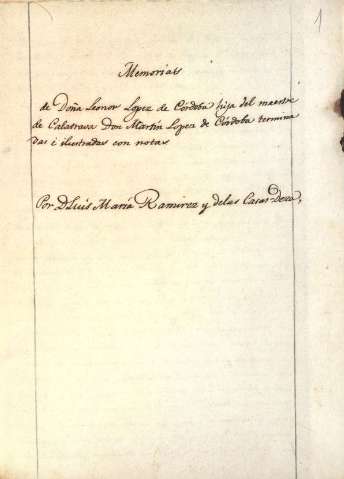 1
Memorias
de Doña Leonor Lopez de Córdoba hija del maestre
de Calatrava Don Martin Lopez de Córdoba termina
das i ilustradas con notas
Por D. Luis María Ramirez y delas Casas-Deza,